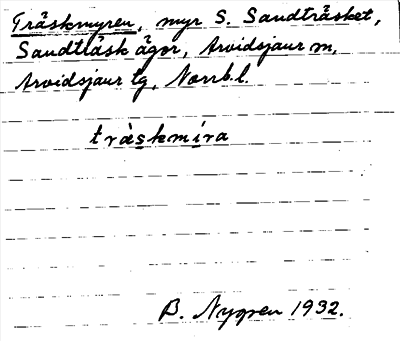 Träskmyren, myr S. Sandträsket,
Sandträsk ägor, Arvidsjaur m,
Arvidsjaur tg, Norrb.l.
tràskmíra
B. Nygren 1932.